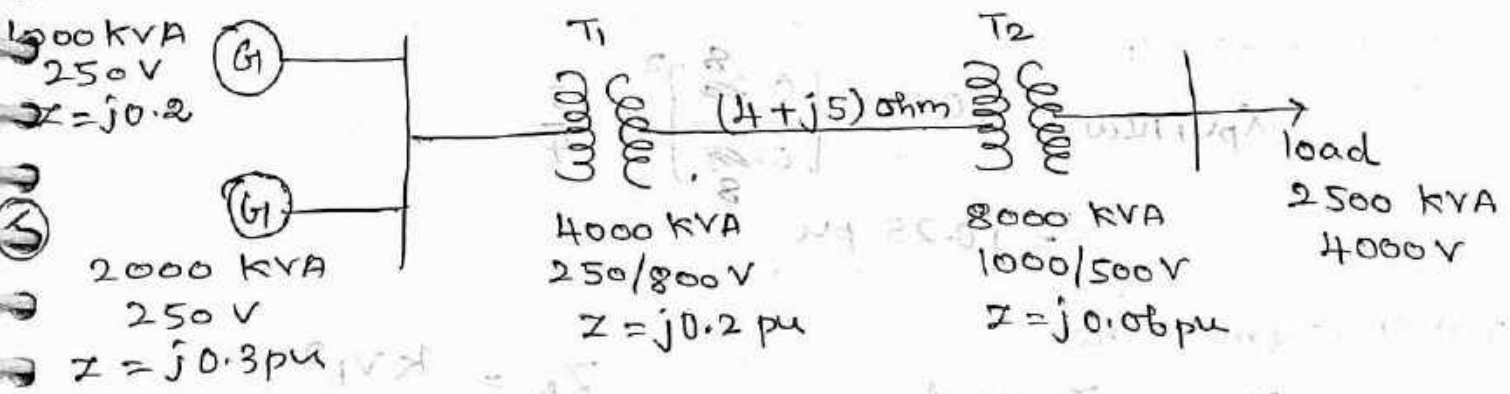 1000 KVA
250V
Z=j0.2
G
G
2000 KVA
250 V
Z = j0.3pu
T1
4000 KVA
250/800V
Z = j0.2 pu
(4+j5) ohm
T2
8000 KVA
1000/500V
Z = j0.06pu
load
2500 KVA
4000V